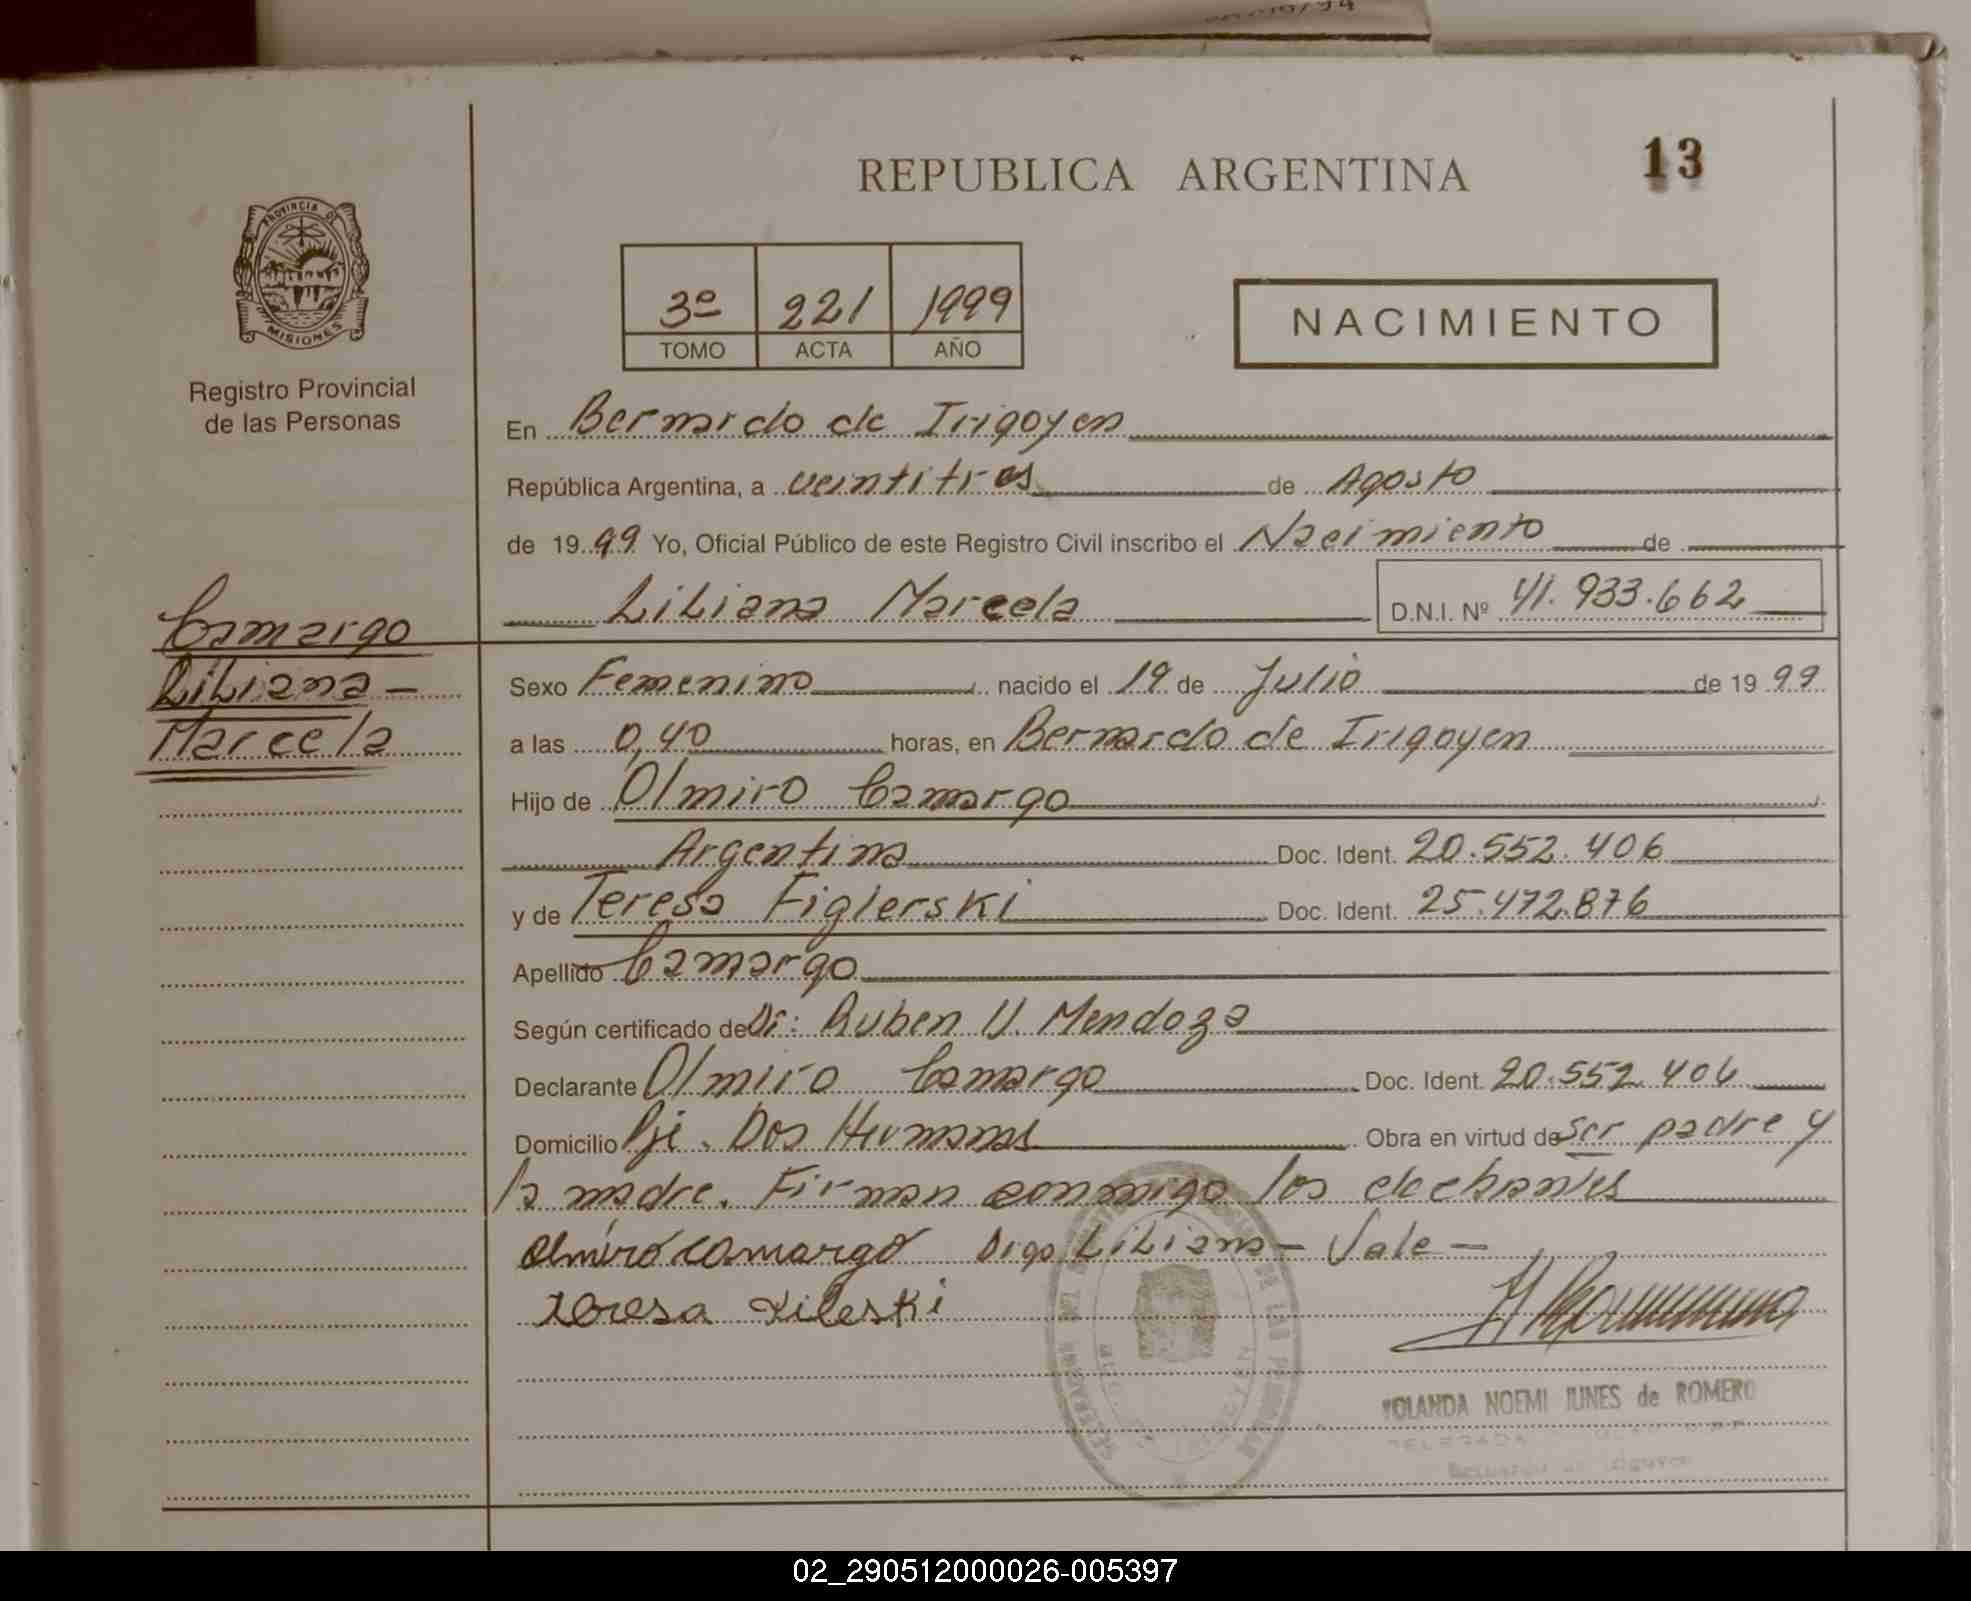 13
REPUBLICA ARGENTINA
PROVINCIA DE
MISIONES
Registro Provincial
de las Personas
3º 221 1999
TOMO ACTA AÑO
NACIMIENTO
En Bernardo de Irigoyen
República Argentina, a veintitres de Agosto
de 1999 Yo, Oficial Público de este Registro Civil inscribo el Nacimiento de
Liliana Marcela D.N.I. Nº 41.933.662
Camargo
Liliana -
Marcela
Sexo Femenino nacido el 19 de Julio de 1999
a las 0,40 horas, en Bernardo de Irigoyen
Hijo de Olmiro Camargo
Argentina Doc. Ident. 20.552.406
y de Teresa Figlerski Doc. Ident. 25.472.876
Apellido Camargo
Según certificado de Dr: Ruben U. Mendoza
Declarante Olmiro Camargo Doc. Ident. 20.552.406
Domicilio Pje. Dos Hermanas Obra en virtud de ser padre y
la madre. Firman conmigo los
Olmiro Camargo Digo Liliana - Vale -
teresa
YOLANDA NOEMI JUNES de ROMERO
02_290512000026-005397